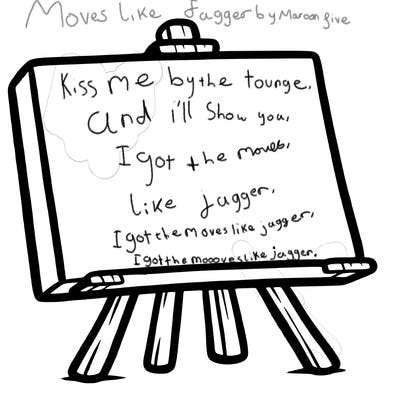 Moves like Jagger by Maroon five
Kiss me by the tounge,
and i'll show you,
I got the moves,
like jagger,
I got the moves like jagger,
I got the moooves like jagger.